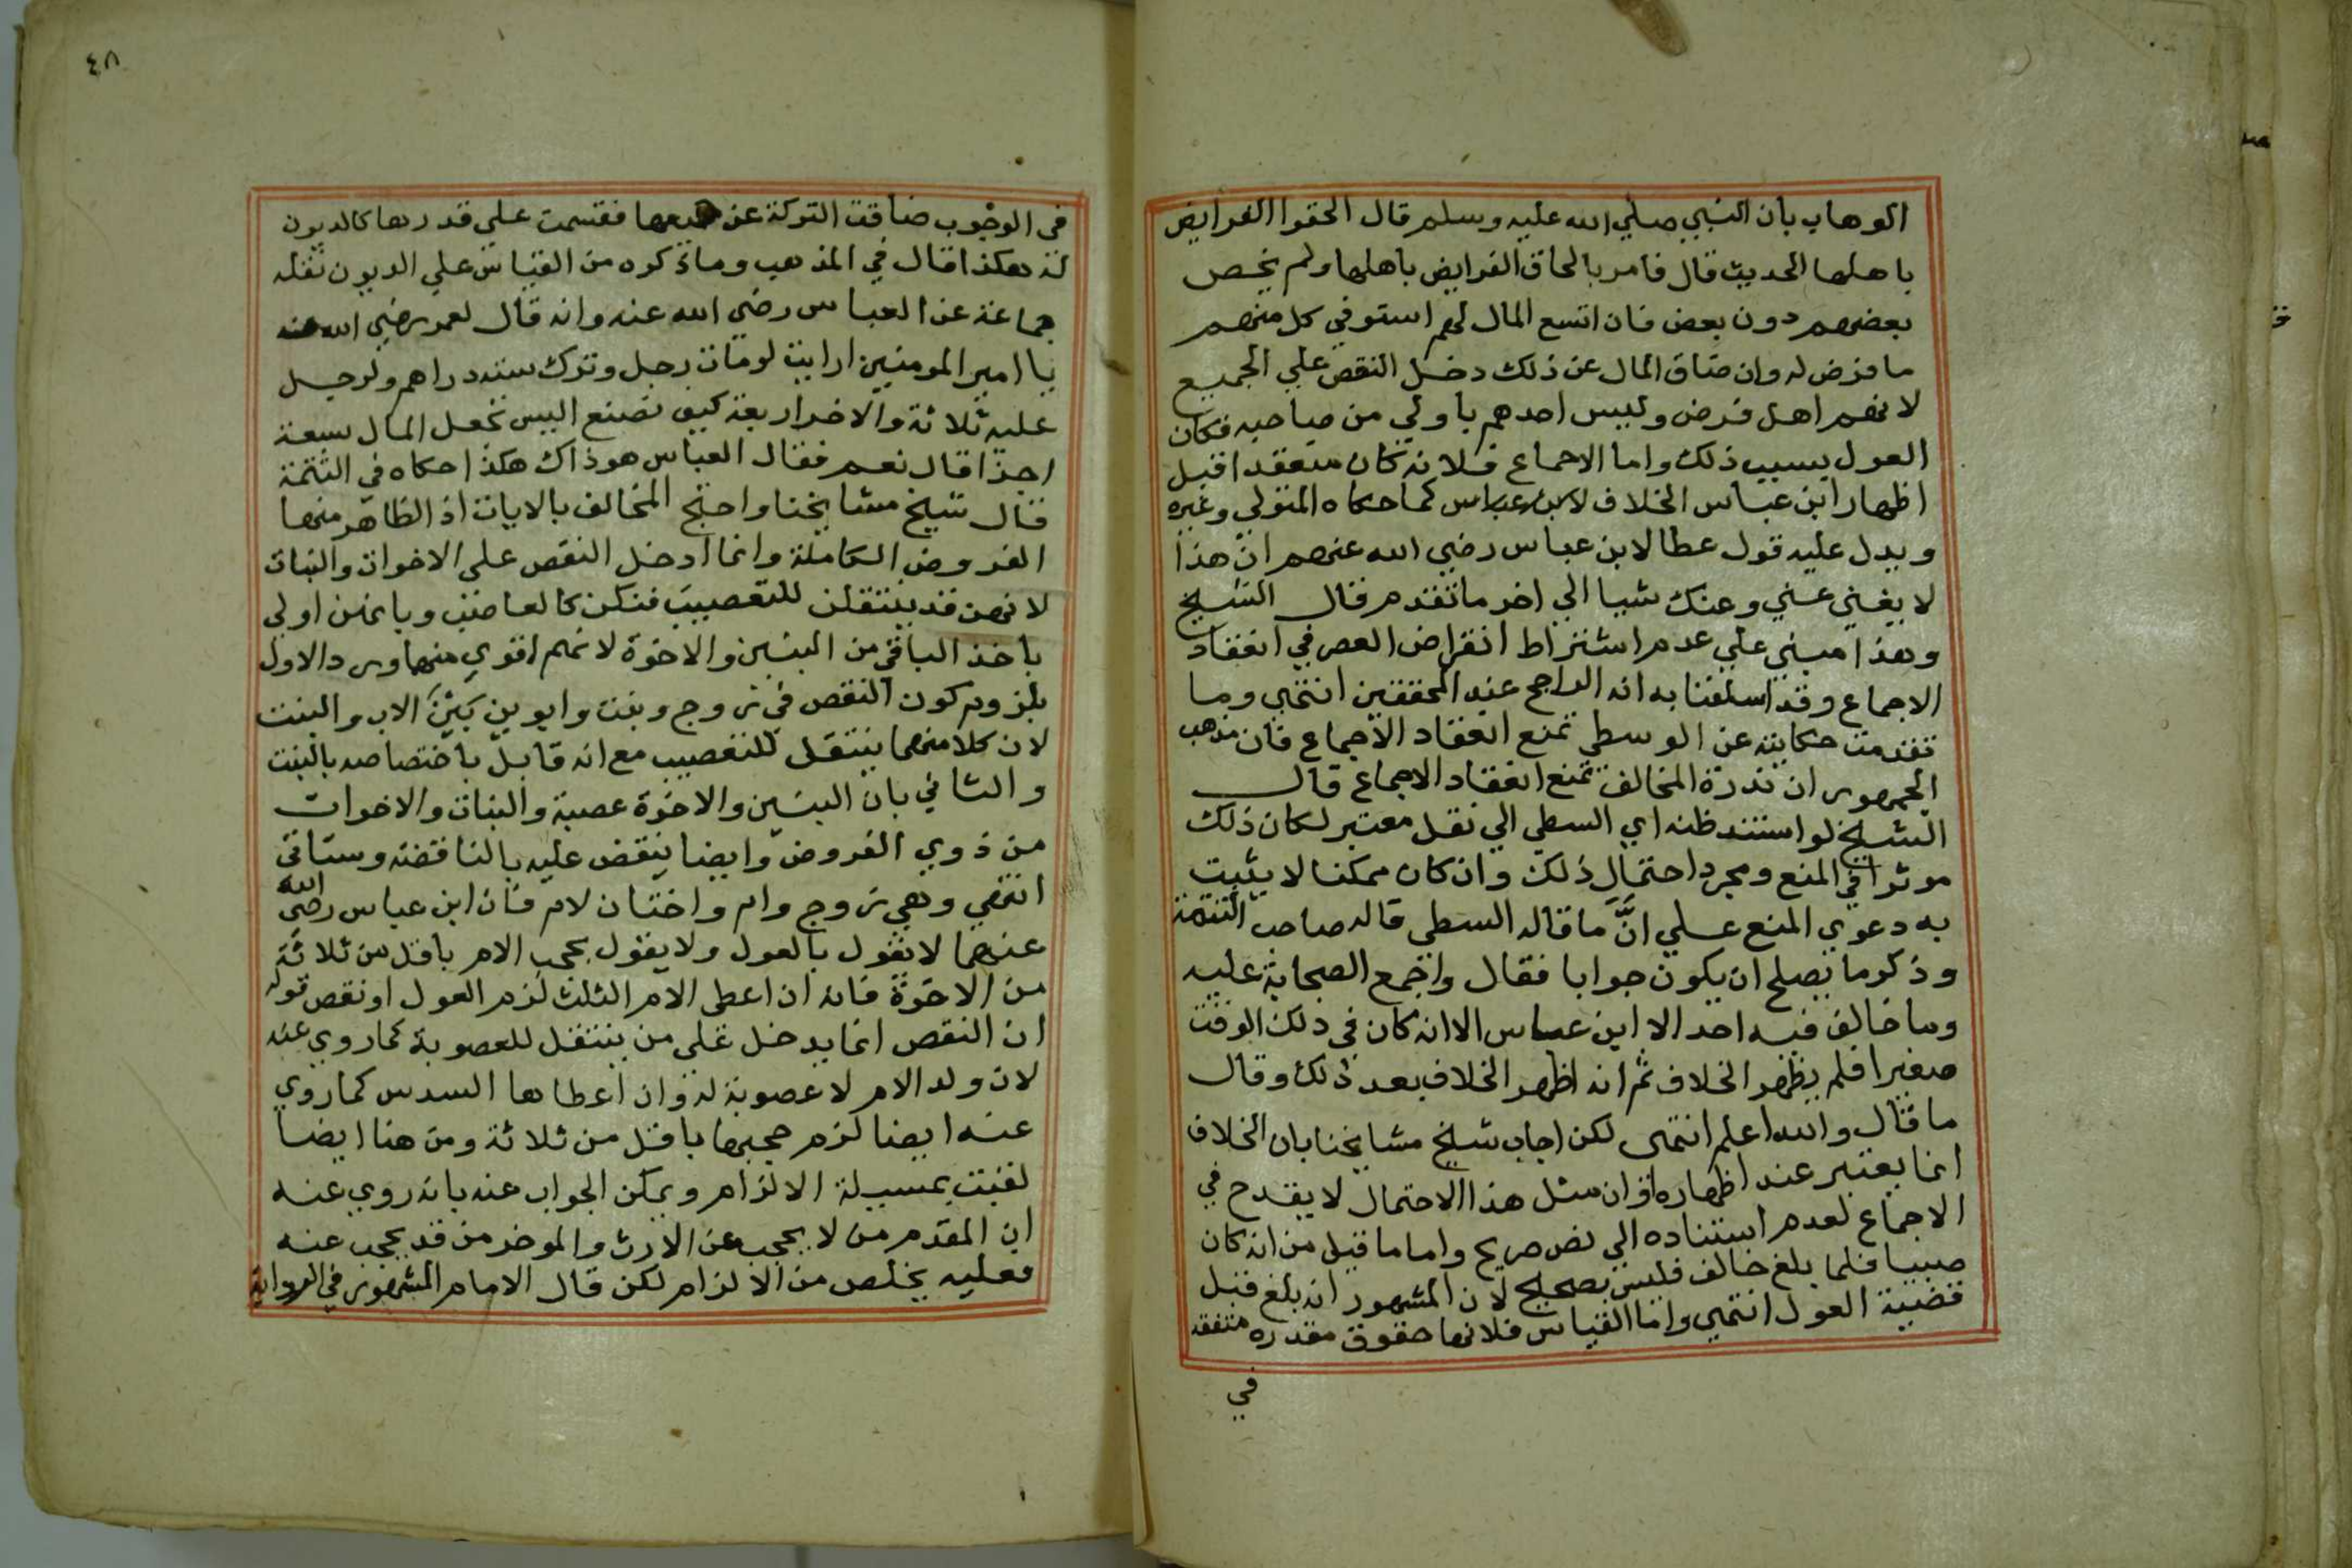 الوهاب بان النبي صلي الله عليه وسلم قال الحقوا الفرايض
باهلها الحديث قال فامر بالحاق الفرايض باهلها ولم يخص
بعضهم دون بعض فان اتسع المال لهم استوفي كل منهم
ما فرض له وان ضاق المال عن ذلك دخل النقص علي الجميع
لانهم اهل فرض وليس احدهم باولي من صاحبه فكان
العول بسبب ذلك واما الاجماع فلانه كان منعقدا قبل
اظهار ابن عباس الخلاف لابن عباس كما حكاه المتولي وغيره
ويدل عليه قول عطا لابن عباس رضي الله عنهم ان هذا
لا يغني عني وعنك شيا الي اخر ما تقدم قال الشيخ
وهذا مبني علي عدم اشتراط انقراض العصر في انعقاد
الاجماع وقد اسلفنا به انه الراجح عند المحققين انتهي وما
تقدمت حكايته عن الوسطي تمنع انعقاد الاجماع فان مذهب
الجمهور ان ندرة المخالف تمنع انعقاد الاجماع قال
الشيخ لو استند ظنه اي السطي الي نقل معتبر لكان ذلك
موثرا في المنع ومجرد احتمال ذلك وان كان ممكنا لا يثبت
به دعوي المنع علي ان ما قاله السطي قاله صاحب التتمة
وذكر ما يصلح ان يكون جوابا فقال واجمع الصحابة عليه
وما خالف فيه احد الا ابن عباس الا انه كان في ذلك الوقت
صغيرا فلم يظهر الخلاف ثم انه اظهر الخلاف بعد ذلك وقال
ما قال والله اعلم انتهى لكن اجاب شيخ مشايخنا بان الخلاف
انما يعتبر عند اظهاره وان مثل هذا الاحتمال لا يقدح في
الاجماع لعدم استناده الي نص صريح واما ما قيل من انه كان
صبيا فلما بلغ خالف فليس بصحيح لان المشهور انه بلغ قبل
قضية العول انتهي واما القياس فلانها حقوق مقدره متفقه
في
٤٨
في الوجوب ضاقت التركة عن جميعها فقسمت علي قدرها كالديون
هكذا قال في المذهب وما ذكره من القياس علي الديون نقله
جماعة عن العباس رضي الله عنه وانه قال لعمر رضي الله عنه
يا امير المومنين ارايت لو مات رجل وترك ستة دراهم ولرجل
عليه ثلاثة والاخر اربعة كيف تصنع اليس تجعل المال سبعة
اجزا قال نعم فقال العباس هو ذاك هكذا حكاه في التتمة
قال شيخ مشايخنا واحتج المخالف بالايات اذ الظاهر منها
الفروض الكاملة وانما ادخل النقص علي الاخوات والبنات
لانهن قد ينتقلن للتعصيب فتكن كالعاصب وبانهن اولي
باخذ الباقي من البنين والاخوة لانهم اقوي منها ورد الاول
بلزوم كون النقص في زوج وبنت وابوين بين الاب والبنت
لان كلا منهما ينتقل للتعصيب مع انه قايل باختصاصه بالبنت
والثاني بان البنين والاخوة عصبة والبنات والاخوات
من ذوي الفروض وايضا ينقض عليه بالناقضه وستاتي
انتهي وهي زوج وام واختان لام فان ابن عباس رضي الله
عنهما لا يقول بالعول ولا يقول بحجب الام باقل من ثلاثة
من الاخوة فانه ان اعطى الام الثلث لزم العول او نقص قوله
ان النقص انما يدخل علي من ينتقل للعصوبة كما روي عنه
لان ولد الام لا عصوبة له وان اعطاها السدس كما روي
عنه ايضا لزم حجبها باقل من ثلاثة ومن هنا ايضا
لقبت بمسيلة الالزام ويمكن الجواب عنه بانه روي عنه
ان المقدم من لا يحجب عن الارث والموخر من قد يحجب عنه
فعليه يخلص من الالزام لكن قال الامام المشهور في الرواية